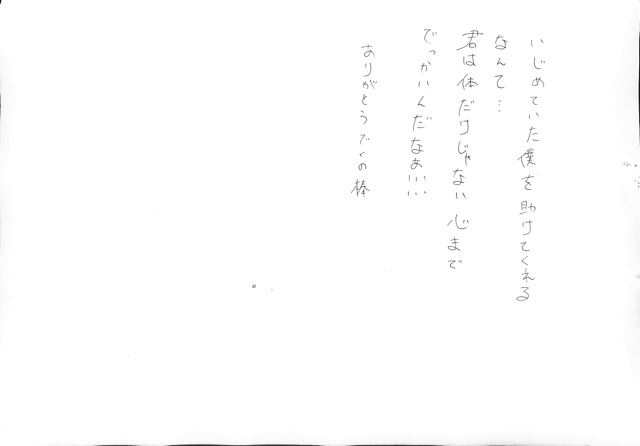 いじめていた僕を助けてくれる
なんて…
君は体だけじゃない心まで
でっかいんだなぁ!!!
ありがとうでくの棒